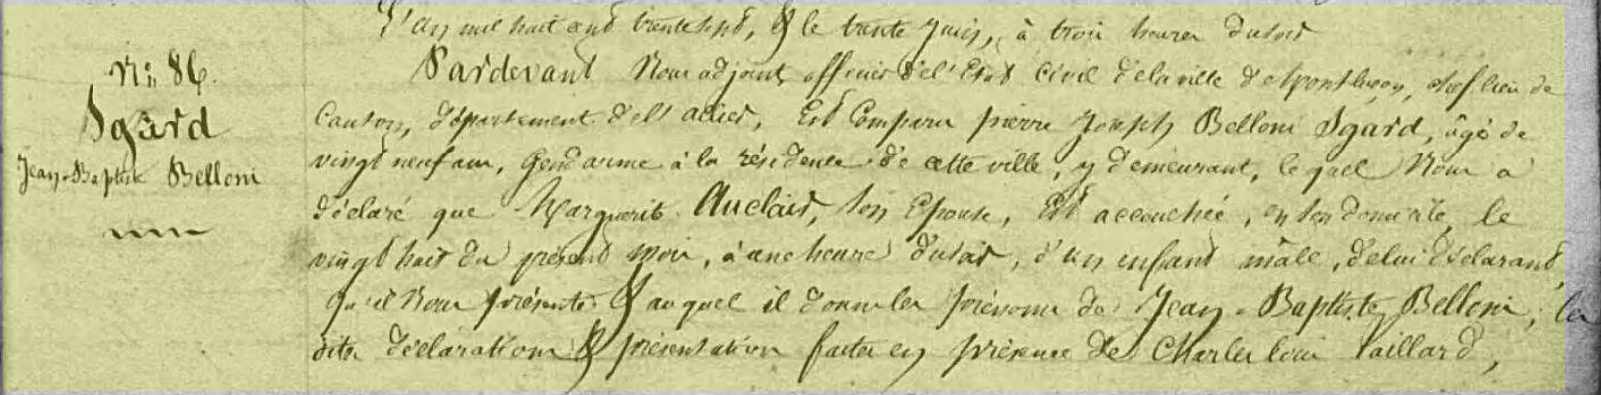 L'an mil huit cent trente sept, & le trente Juin, à trois heures du soir
Nº 86.
Pardevant Nous adjoint, officier de l'Etat Civil de la ville de Montluçon, chef lieu de
Sgard
Canton, département de l'allier, Est Comparu pierre Joseph Belloni Sgard, âgé de
Jean-Baptiste Belloni
vingt neuf ans, Gendarme à la résidence de cette ville, y demeurant, lequel Nous a
déclaré que Marguerite Auclair, son Epouse, Est accouchée, en son domicile, le
vingt huit du présent mois, à une heure du soir, d'un enfant mâle, de lui déclarant,
qu'il Nous présente & auquel il donne les prénoms de Jean-Baptiste Belloni; les
dites déclaration & présentation faites en présence de Charles Louis Paillard,